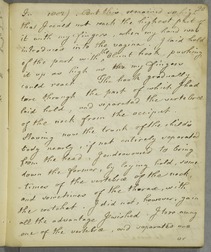 In 1809, but there remained so high
that I could not reach the highest part of
it with my fingers, when my hand was
introduced into the vagina. I laid hold
of the part with a blunt hook, pushing
it up as high as the my fingers
could reach. The hook gradually
tore through the part of which I had
laid hold, and separated the vertebrae
of the neck from the occiput.
Having now the trunk of the child's
body nearly, if not entirely, separated
from the head, I endeavoured to bring
down the former, by laying hold, some
times of the vertebrae of the neck,
and sometimes of the thorax, with
the crotchet. I did not, however, gain
all the advantage I wished. I tore away
one of the vertebrae, and separated one
or